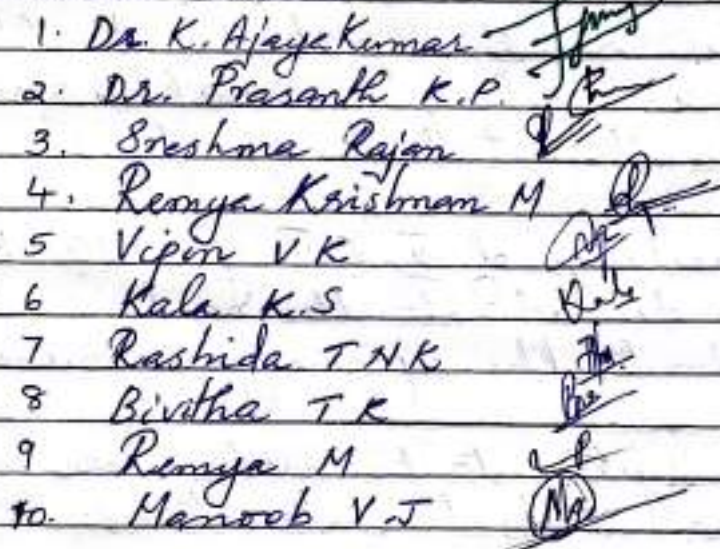 1. Dr. K. Ajaya Kumar
2. Dr. Prasanth K.P.
3. Sreshma Rajan
4. Remya Krishnan M
5 Vipin V K
6 Kala K.S
7 Rashida T N.K
8 Bivitha T K
9 Remya M
10. Manoob V.J